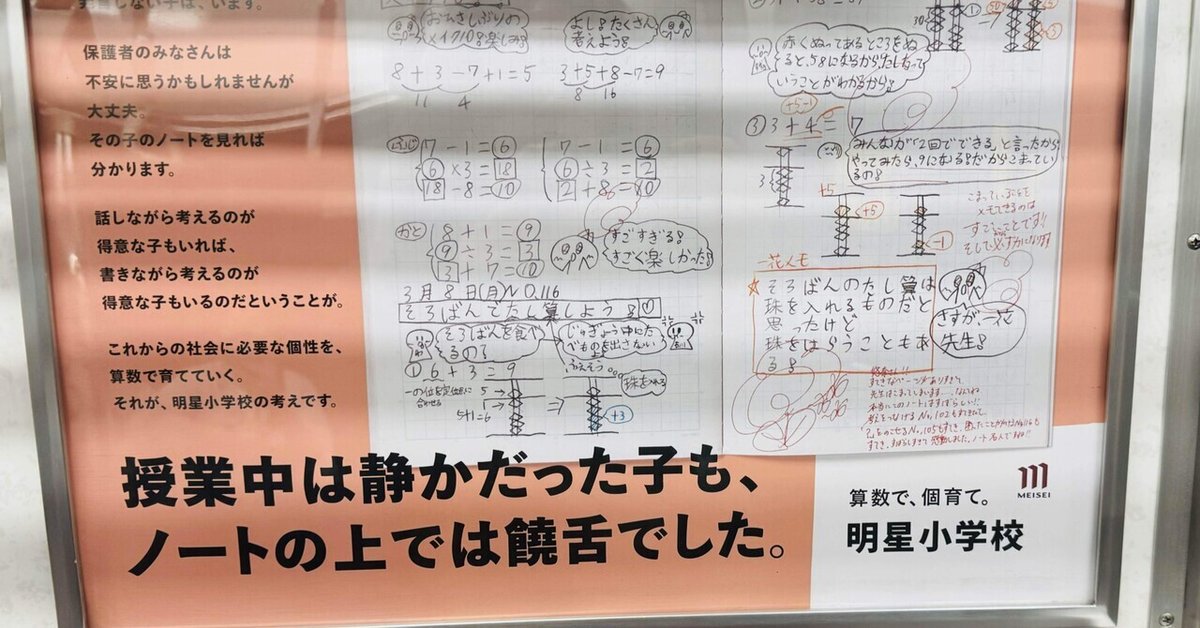 発言しない子は、います。
保護者のみなさんは
不安に思うかもしれませんが
大丈夫。
その子のノートを見れば
分かります。
話しながら考えるのが
得意な子もいれば、
書きながら考えるのが
得意な子もいるのだということが。
これからの社会に必要な個性を、
算数で育てていく。
それが、明星小学校の考えです。
おひさしぶりの
よし!たくさん
考えよう!
8+3-7+1=5
11 4
3+5+8-7=9
8 16
7-1=⑥
⑥×3=18
18-8=⑩
7-1=⑥
⑥÷3=2
2+8=⑩
8+1=⑨
⑨÷3=3
3+7=⑩
すごすぎる!
すごく楽しかった!
3月8日(月)No.116
そろばんでたし算しよう!①
そろばんを食べ
るの?
じゅぎょう中にた
べものを出さない
①6+3=9
一の位を定位点に
合わせる
5
1
5+1=6
⇒
珠を入れる
+3
30
赤くぬってあるところをぬ
ると、58になるからたし算って
いうことがわかるから!
+5-1
③3+4=7
3
みんなが「2回でできる」と言ったから
やってみたら、9になる!だからこまってい
るの!
+5
+5
-1
こまっていることを
メモできるのは
すごいことです!!
一花人も
そろばんのたし算は
珠を入れるものだと
思ったけど
珠をはらうこともあ
る!
さすが、一花
先生!
授業中は静かだった子も、
ノートの上では饒舌でした。
MEISEI
算数で、個育て。
明星小学校